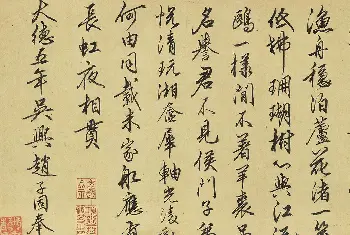 漁舟穩泊蘆花渚一
低拂珊瑚樹心與江
鷗一樣閒不著羊裘
名譽君不見侯門子
悅清玩湘奩犀軸光凌
何由同載米家船應
長虹夜相貫
大德五年吳興趙子昂奉